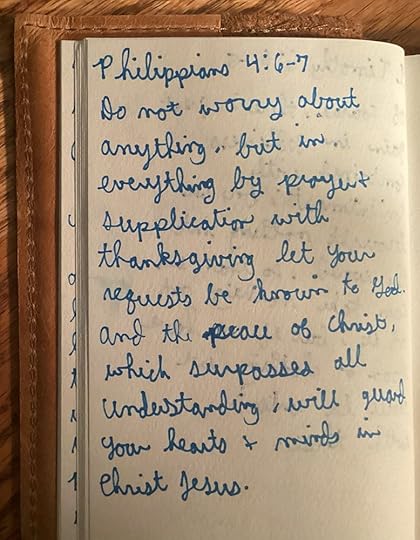 Philippians 4:6-7
Do not worry about
anything, but in
everything by prayer +
supplication with
thanksgiving let your
requests be known to God.
and the peace of Christ,
which surpasses all
understanding, will guard
your hearts + minds in
Christ Jesus.